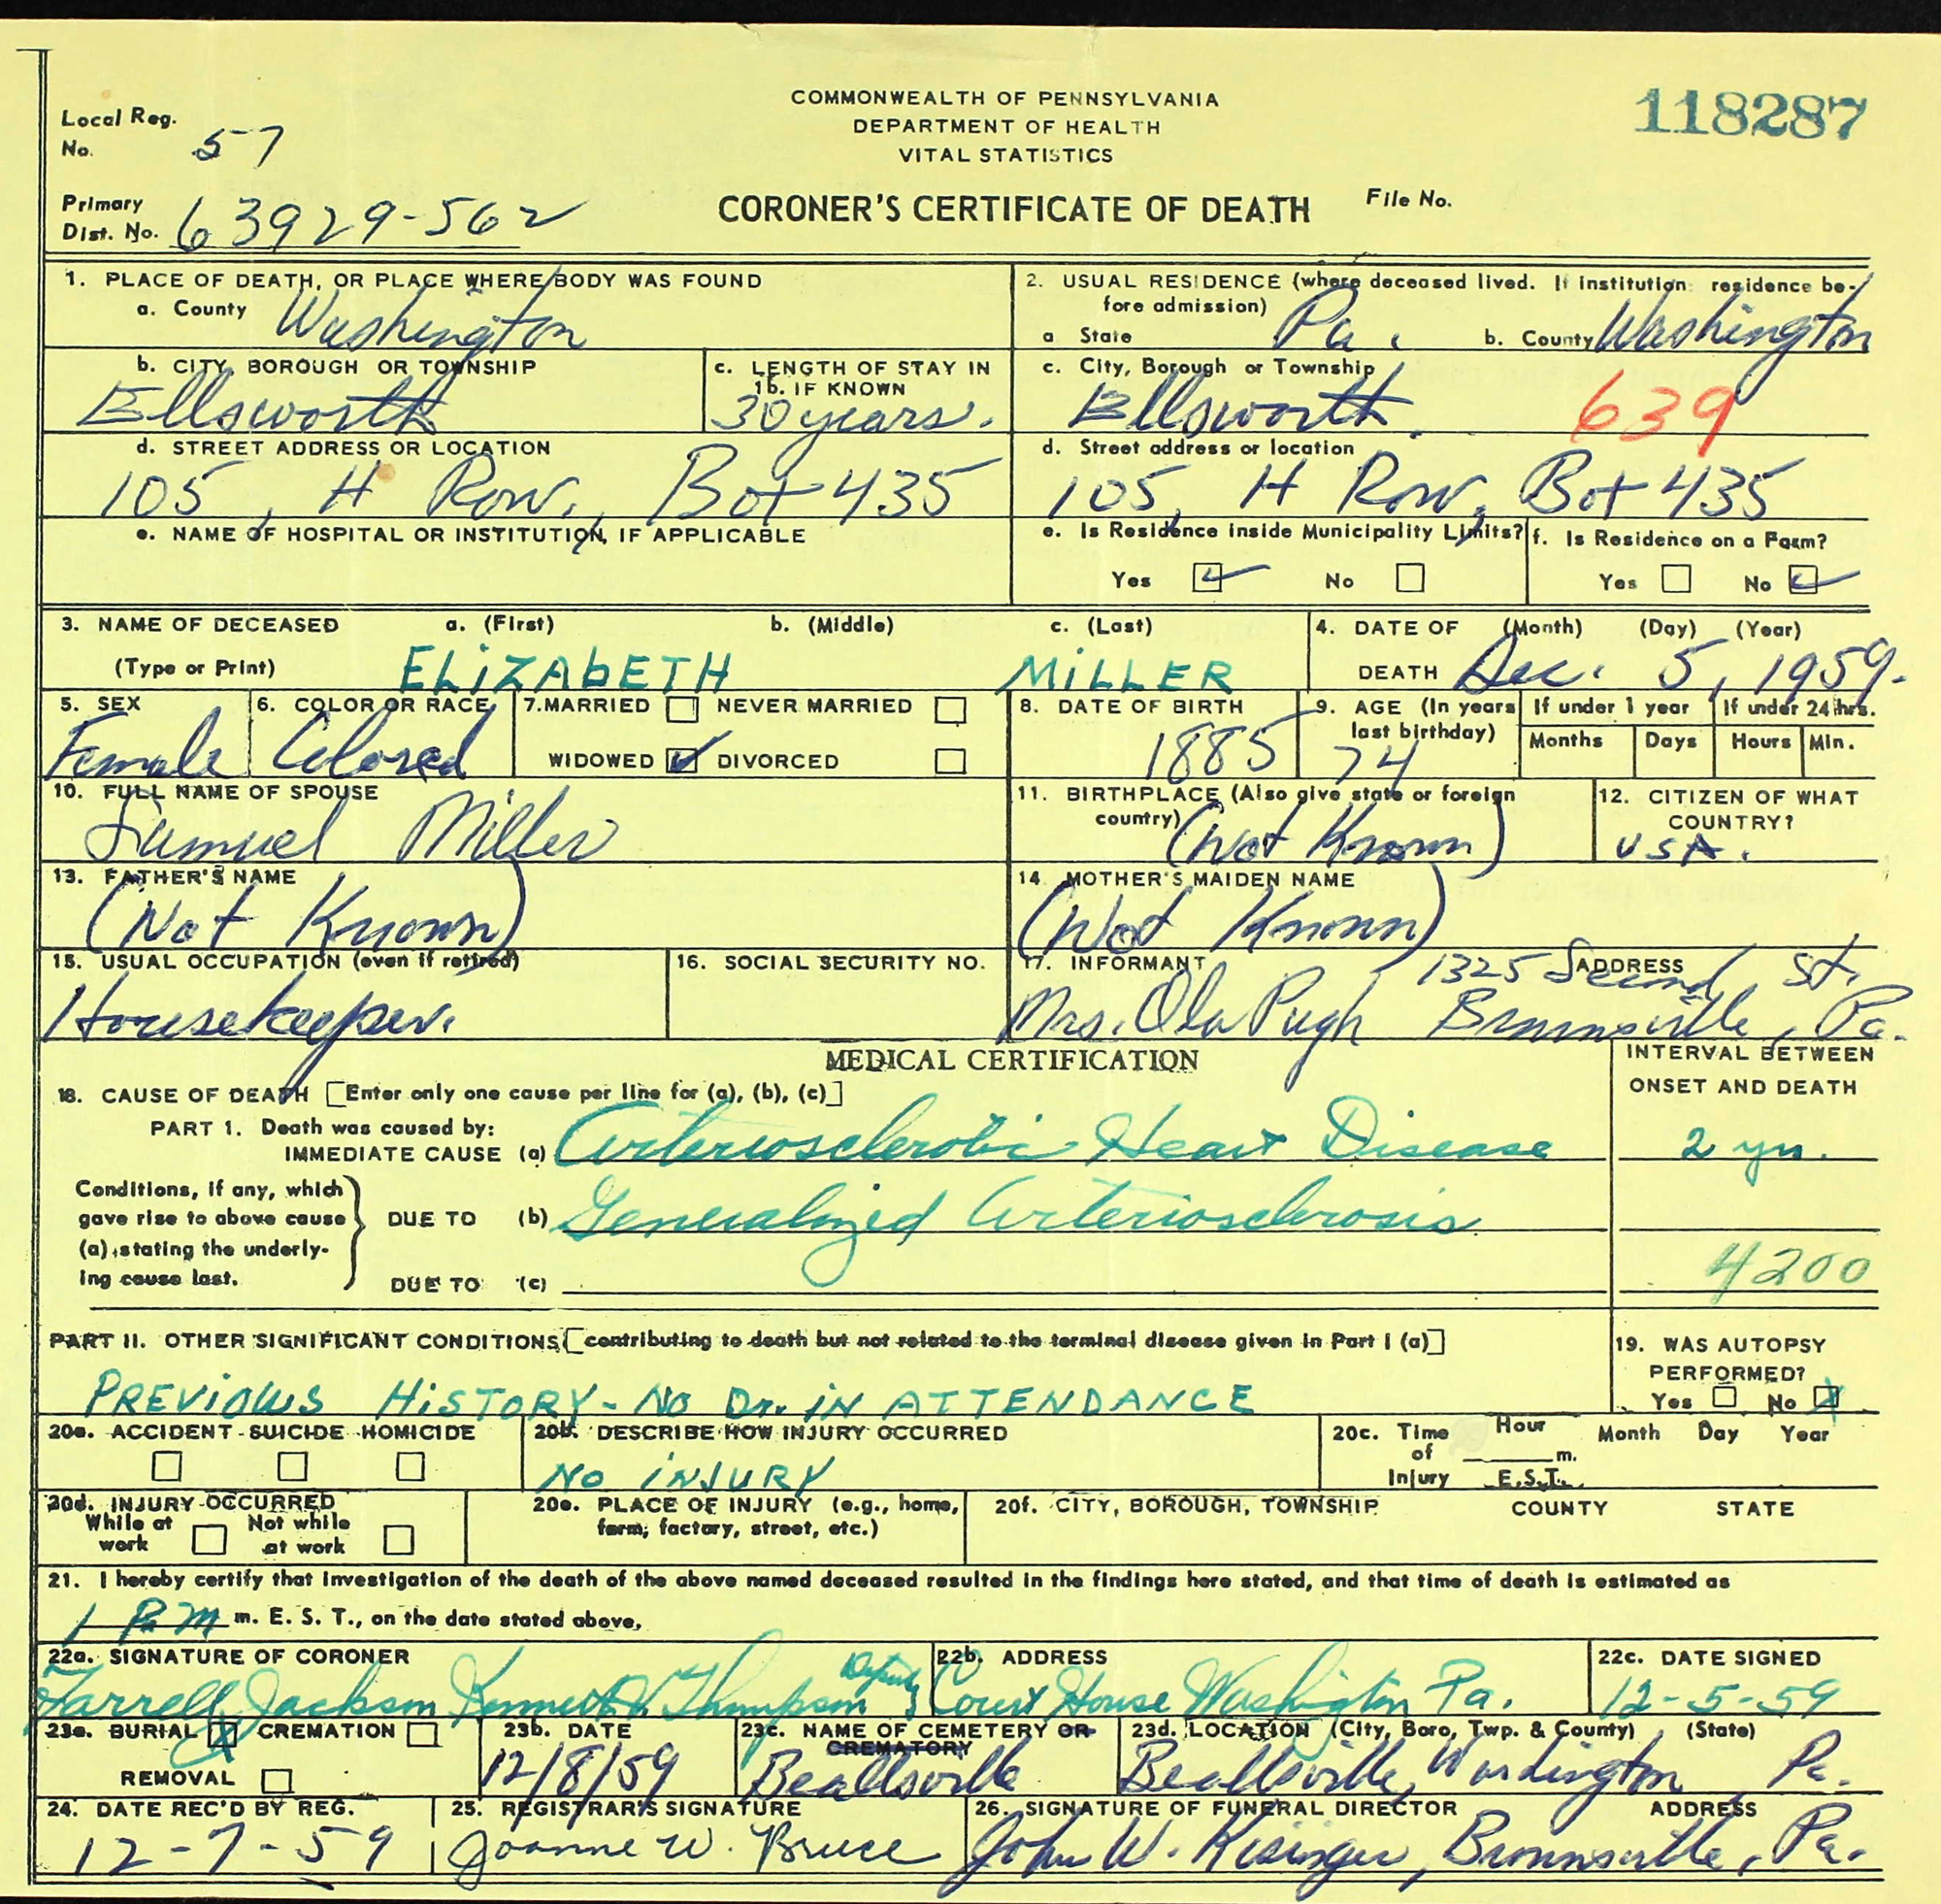 COMMONWEALTH OF PENNSYLVANIA
DEPARTMENT OF HEALTH
VITAL STATISTICS
118287
Local Reg.
No. 57
Primary
Dist. No. 63929-562
CORONER'S CERTIFICATE OF DEATH
File No.
1. PLACE OF DEATH, OR PLACE WHERE BODY WAS FOUND
a. County Washington
2. USUAL RESIDENCE (where deceased lived. If institution: residence be-
fore admission)
a State Pa. b. County Washington
b. CITY, BOROUGH OR TOWNSHIP
Ellsworth
c. LENGTH OF STAY IN
1b. IF KNOWN
30 years.
c. City, Borough or Township
Ellsworth. 639
d. STREET ADDRESS OR LOCATION
105, H Row, Box 435
d. Street address or location
105, H Row, Box 435
e. NAME OF HOSPITAL OR INSTITUTION, IF APPLICABLE
e. Is Residence inside Municipality Limits?
Yes No
f. Is Residence on a Farm?
Yes No
3. NAME OF DECEASED a. (First) b. (Middle) c. (Last)
(Type or Print) ELiZAbETH MiLLER
4. DATE OF (Month) (Day) (Year)
DEATH Dec. 5, 1959.
5. SEX
Female
6. COLOR OR RACE
Colored
7. MARRIED NEVER MARRIED
WIDOWED DIVORCED
8. DATE OF BIRTH
1885
9. AGE (In years
last birthday)
74
If under 1 year
Months Days
If under 24 hrs.
Hours Min.
10. FULL NAME OF SPOUSE
Samuel Miller
11. BIRTHPLACE (Also give state or foreign
country) (Not Known)
12. CITIZEN OF WHAT
COUNTRY?
USA.
13. FATHER'S NAME
(Not Known)
14. MOTHER'S MAIDEN NAME
(Not Known)
15. USUAL OCCUPATION (even if retired)
Housekeeper.
16. SOCIAL SECURITY NO.
17. INFORMANT ADDRESS
1325 Second St.
Mrs. Ola Pugh Brownsville, Pa.
MEDICAL CERTIFICATION
INTERVAL BETWEEN
ONSET AND DEATH
18. CAUSE OF DEATH [Enter only one cause per line for (a), (b), (c)]
PART 1. Death was caused by:
IMMEDIATE CAUSE (a) Arteriosclerotic Heart Disease 2 yrs.
Conditions, if any, which
gave rise to above cause
(a), stating the underly-
ing cause last.
DUE TO (b) Generalized Arteriosclerosis
DUE TO (c)
4200
PART II. OTHER SIGNIFICANT CONDITIONS [contributing to death but not related to the terminal disease given in Part I (a)]
PREViOUS HiSTORY - NO Dr. iN ATTENDANCE
19. WAS AUTOPSY
PERFORMED?
Yes No
20a. ACCIDENT - SUICIDE - HOMICIDE
20b. DESCRIBE HOW INJURY OCCURRED
NO iNJURY
20c. Time Hour Month Day Year
of m.
Injury E.S.T.
20d. INJURY OCCURRED
While at Not while
work at work
20e. PLACE OF INJURY (e.g., home,
farm, factory, street, etc.)
20f. CITY, BOROUGH, TOWNSHIP COUNTY STATE
21. I hereby certify that investigation of the death of the above named deceased resulted in the findings here stated, and that time of death is estimated as
1 P.M m. E. S. T., on the date stated above.
22a. SIGNATURE OF CORONER
Farrell Jackson Kenneth Thompson Deputy
22b. ADDRESS
Court House Washington Pa.
22c. DATE SIGNED
12-5-59
23a. BURIAL CREMATION
REMOVAL
23b. DATE
12/8/59
23c. NAME OF CEMETERY OR
CREMATORY
Beallsville
23d. LOCATION (City, Boro, Twp. & County) (State)
Beallsville, Washington, Pa.
24. DATE REC'D BY REG.
12-7-59
25. REGISTRAR'S SIGNATURE
Joanne W. Bruce
26. SIGNATURE OF FUNERAL DIRECTOR ADDRESS
John W. Kisinger, Brownsville, Pa.